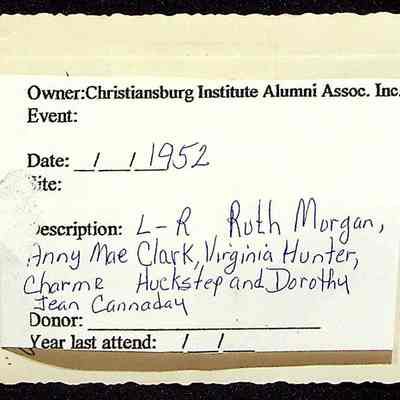 Owner:Christiansburg Institute Alumni Assoc. Inc.
Event:
Date: / / 1952
Site:
Description: L-R Ruth Morgan,
Anny Mae Clark, Virginia Hunter,
Charme Huckstep and Dorothy
Jean Cannaday
Donor:
Year last attend: / /